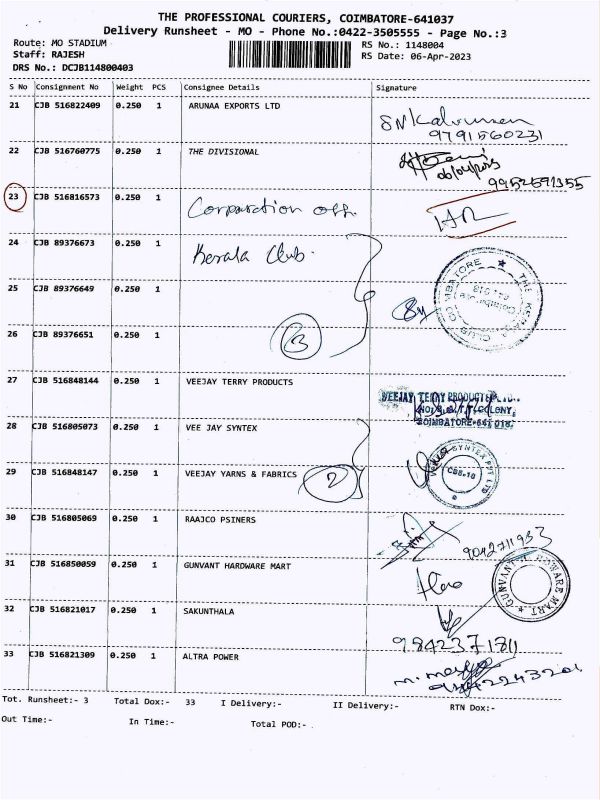 THE PROFESSIONAL COURIERS, COIMBATORE-641037
Delivery Runsheet - MO - Phone No.:0422-3505555 - Page No.:3
Route: MO STADIUM RS No.: 1148004
Staff: RAJESH RS Date: 06-Apr-2023
DRS No.: DCJB114800403
S No Consignment No Weight PCS Consignee Details Signature
21 CJB 516822409 0.250 1 ARUNAA EXPORTS LTD
9791560231
22 CJB 516760775 0.250 1 THE DIVISIONAL
06/04/2023
9952591355
23 CJB 516816573 0.250 1 Corporation off.
24 CJB 89376673 0.250 1 Kerala Club.
THE KERALA CLUB COIMBATORE
25 CJB 89376649 0.250 1
26 CJB 89376651 0.250 1
3
27 CJB 516848144 0.250 1 VEEJAY TERRY PRODUCTS
VEEJAY TERRY PRODUCTS
COLONY,
COIMBATORE-641 018.
28 CJB 516805073 0.250 1 VEE JAY SYNTEX
SYNTEX PVT LTD
CBE-18
29 CJB 516848147 0.250 1 VEEJAY YARNS & FABRICS 2
30 CJB 516805069 0.250 1 RAAJCO PSINERS
9042711953
31 CJB 516850059 0.250 1 GUNVANT HARDWARE MART
GUNVANT HARDWARE MART
32 CJB 516821017 0.250 1 SAKUNTHALA
9842371811
33 CJB 516821309 0.250 1 ALTRA POWER
Tot. Runsheet:- 3 Total Dox:- 33 I Delivery:- II Delivery:- RTN Dox:-
Out Time:- In Time:- Total POD:-